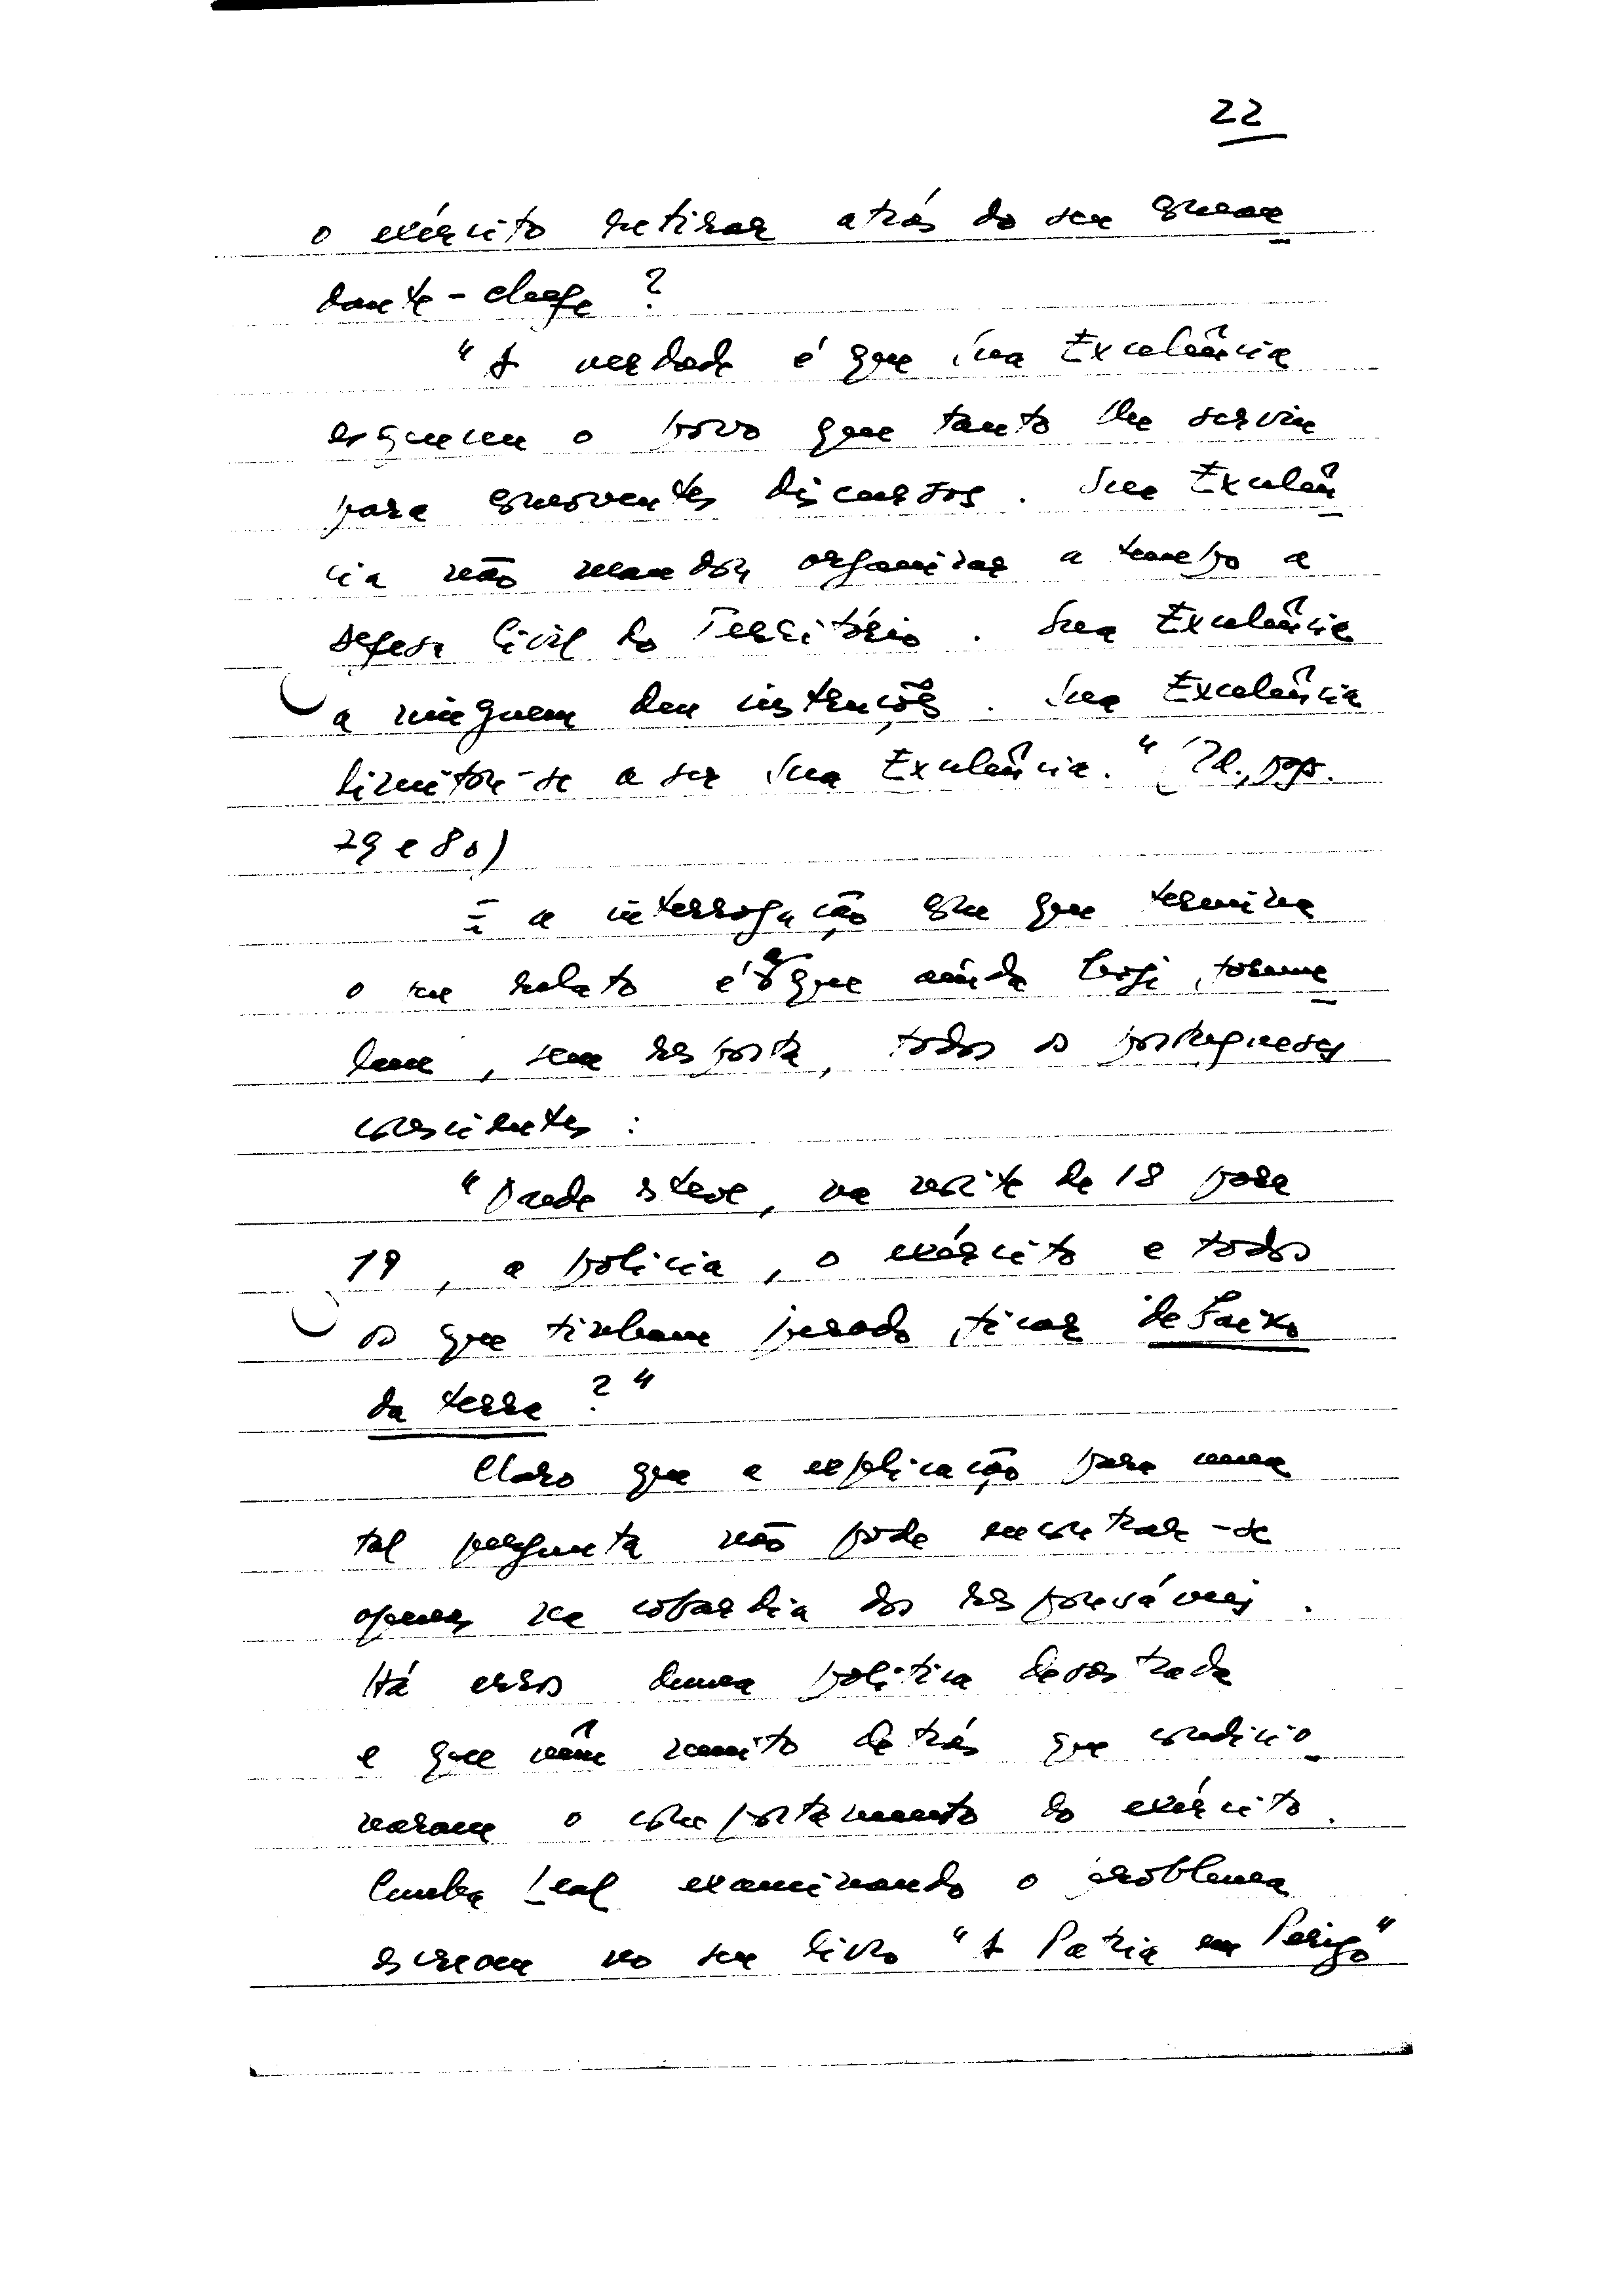 22
o exército retirar atrás do seu coman
dante-chefe?
"A verdade é que Sua Excelência
esqueceu o povo que tanto lhe serviu
para comoventes discursos. Sua Excelên
cia não mandou organizar a tempo a
defesa civil do Território. Sua Excelência
a ninguem deu instruções. Sua Excelência
limitou-se a ser Sua Excelência." (Id., pgs.
79 e 80)
E a interrogação com que termina
o seu relato é a que ainda hoje formu
lam, sem resposta, todos os portugueses
conscientes:
"Onde esteve, na noite de 18 para
19, a policia, o exército e todos
os que tinham jurado ficar debaixo
da terra?"
Claro que a explicação para uma
tal pergunta não pode encontrar-se
apenas na cobardia dos responsáveis.
Há erros duma politica desastrada
e que vêm muito detrás que condicio
naram o comportamento do exército.
Cunha Leal examinando o problema
escreveu no seu livro "A Patria em Perigo"